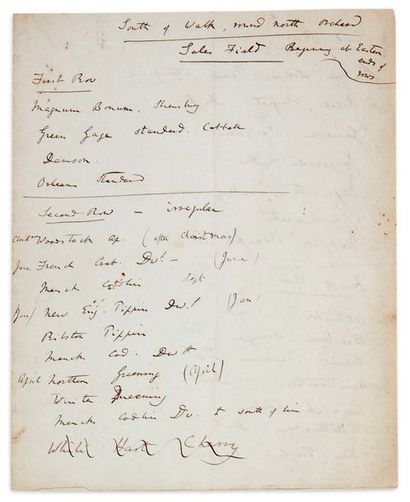 South of Walk, round north Orchard
Sales Field Beginning at Eastern
ends of
rows
First Row
Magnum Bonum. Shrewsbury
Green Gage standard.
Damson.
Orleans Standard
Second Row – irregular
Woodstock ap. (after Christmas)
June French Crab. Dwf – (June)
Manck Codlin Sept
Jan/ New Eng. Pippin Dwf (Jan)
Ribston Pippin
Manck Cod. Dwf
April Northern Greening (April)
Winter Queening
Manck Codlin Dw. to south of line
White Hart Cherry